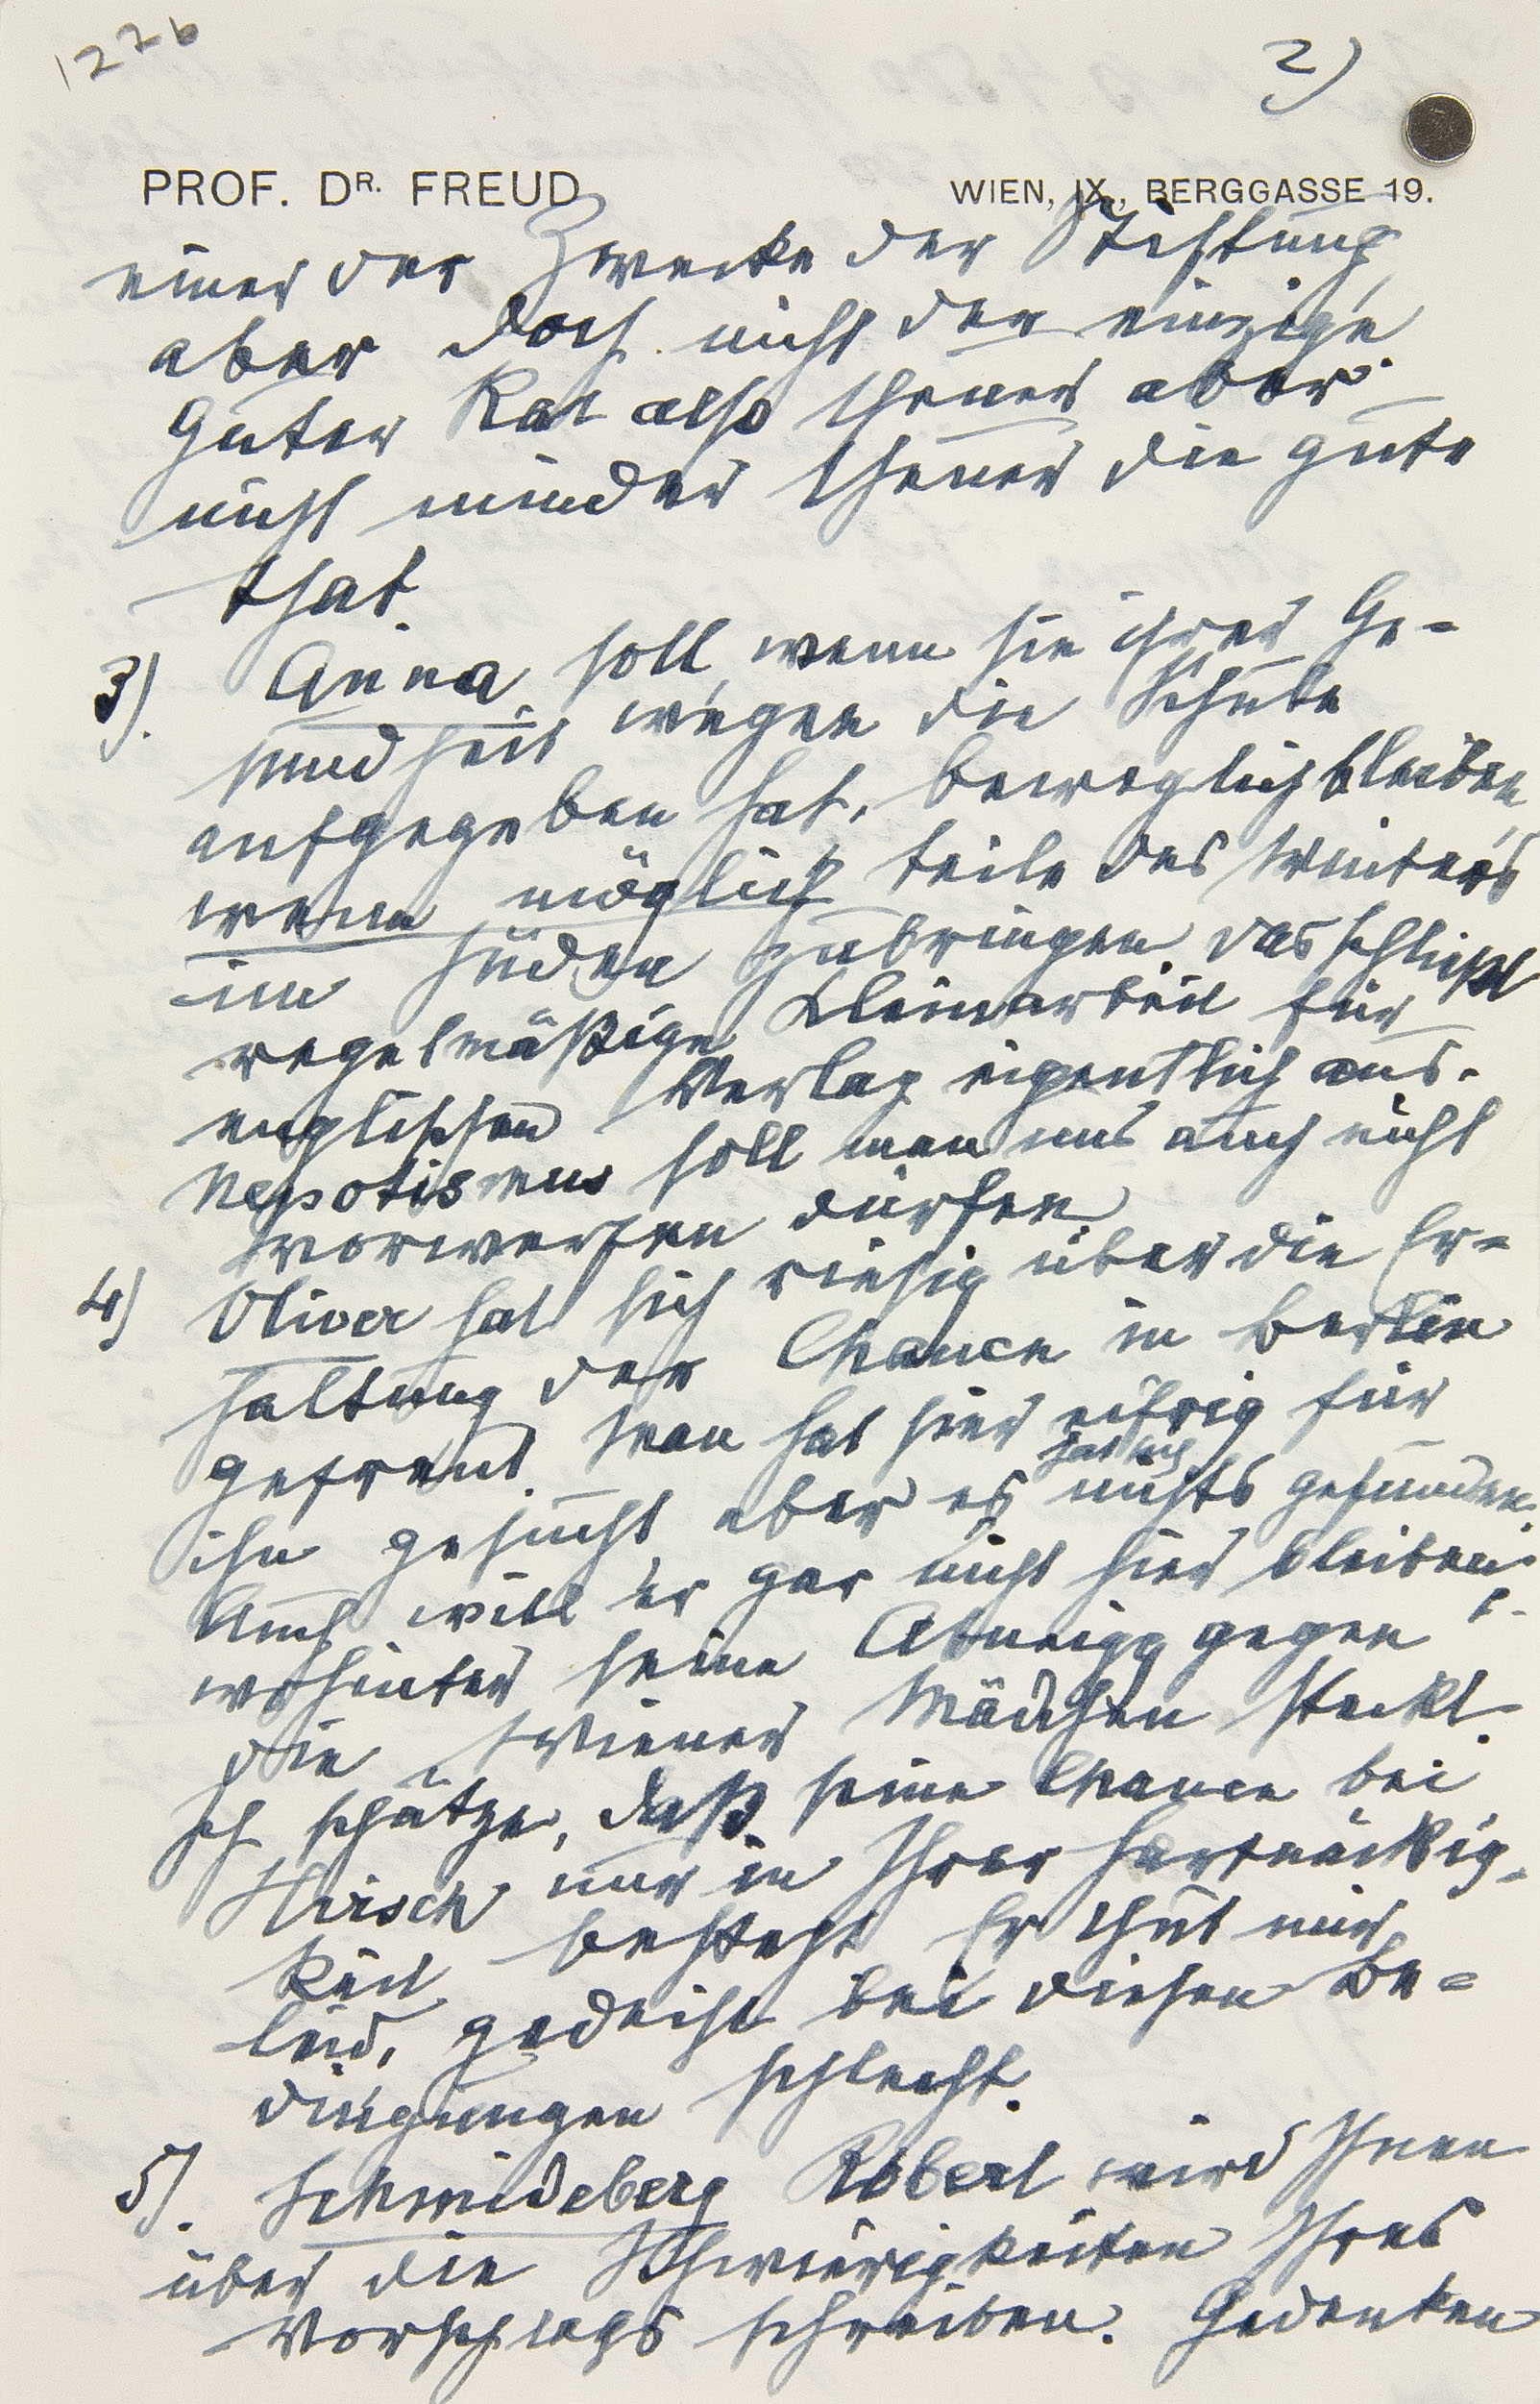 122b
2)
PROF. DR. FREUD
WIEN, IX., BERGGASSE 19.
einer der Zwecke der Stiftung
aber doch nicht der einzige
Guter Rat also theuer aber
nicht minder theuer die gute
that.
3). Anna soll, wenn sie ihrer Ge-
sundheit wegen die Schule
aufgegeben hat, beweglich bleiben,
wenn möglich teile des Winters
im Süden zubringen. das schließt
regelmäßige Kleinarbeit für
englischen Verlag eigentlich aus.
Nepotismus soll man uns auch nicht
vorwerfen dürfen
4) Oliver hat sich riesig über die Er-
haltung der Chance in Berlin
gefreut. Man hat hier eifrig für
ihn gesucht aber es hat sich nichts gefunden.
Auch will er gar nicht hier bleiben,
wohinter seine Abneigg gegen
die Wiener Mädchen steckt.
Ich schätze, daß seine Chance bei
Hirsch nur in Ihrer Hartnäckig-
keit besteht. Er thut mir
leid, gedeiht bei diesen Be-
dingungen schlecht.
5). Schmideberg Robert wird Ihnen
über die Schwierigkeiten Ihres
Vorschlags schreiben. Gedenken